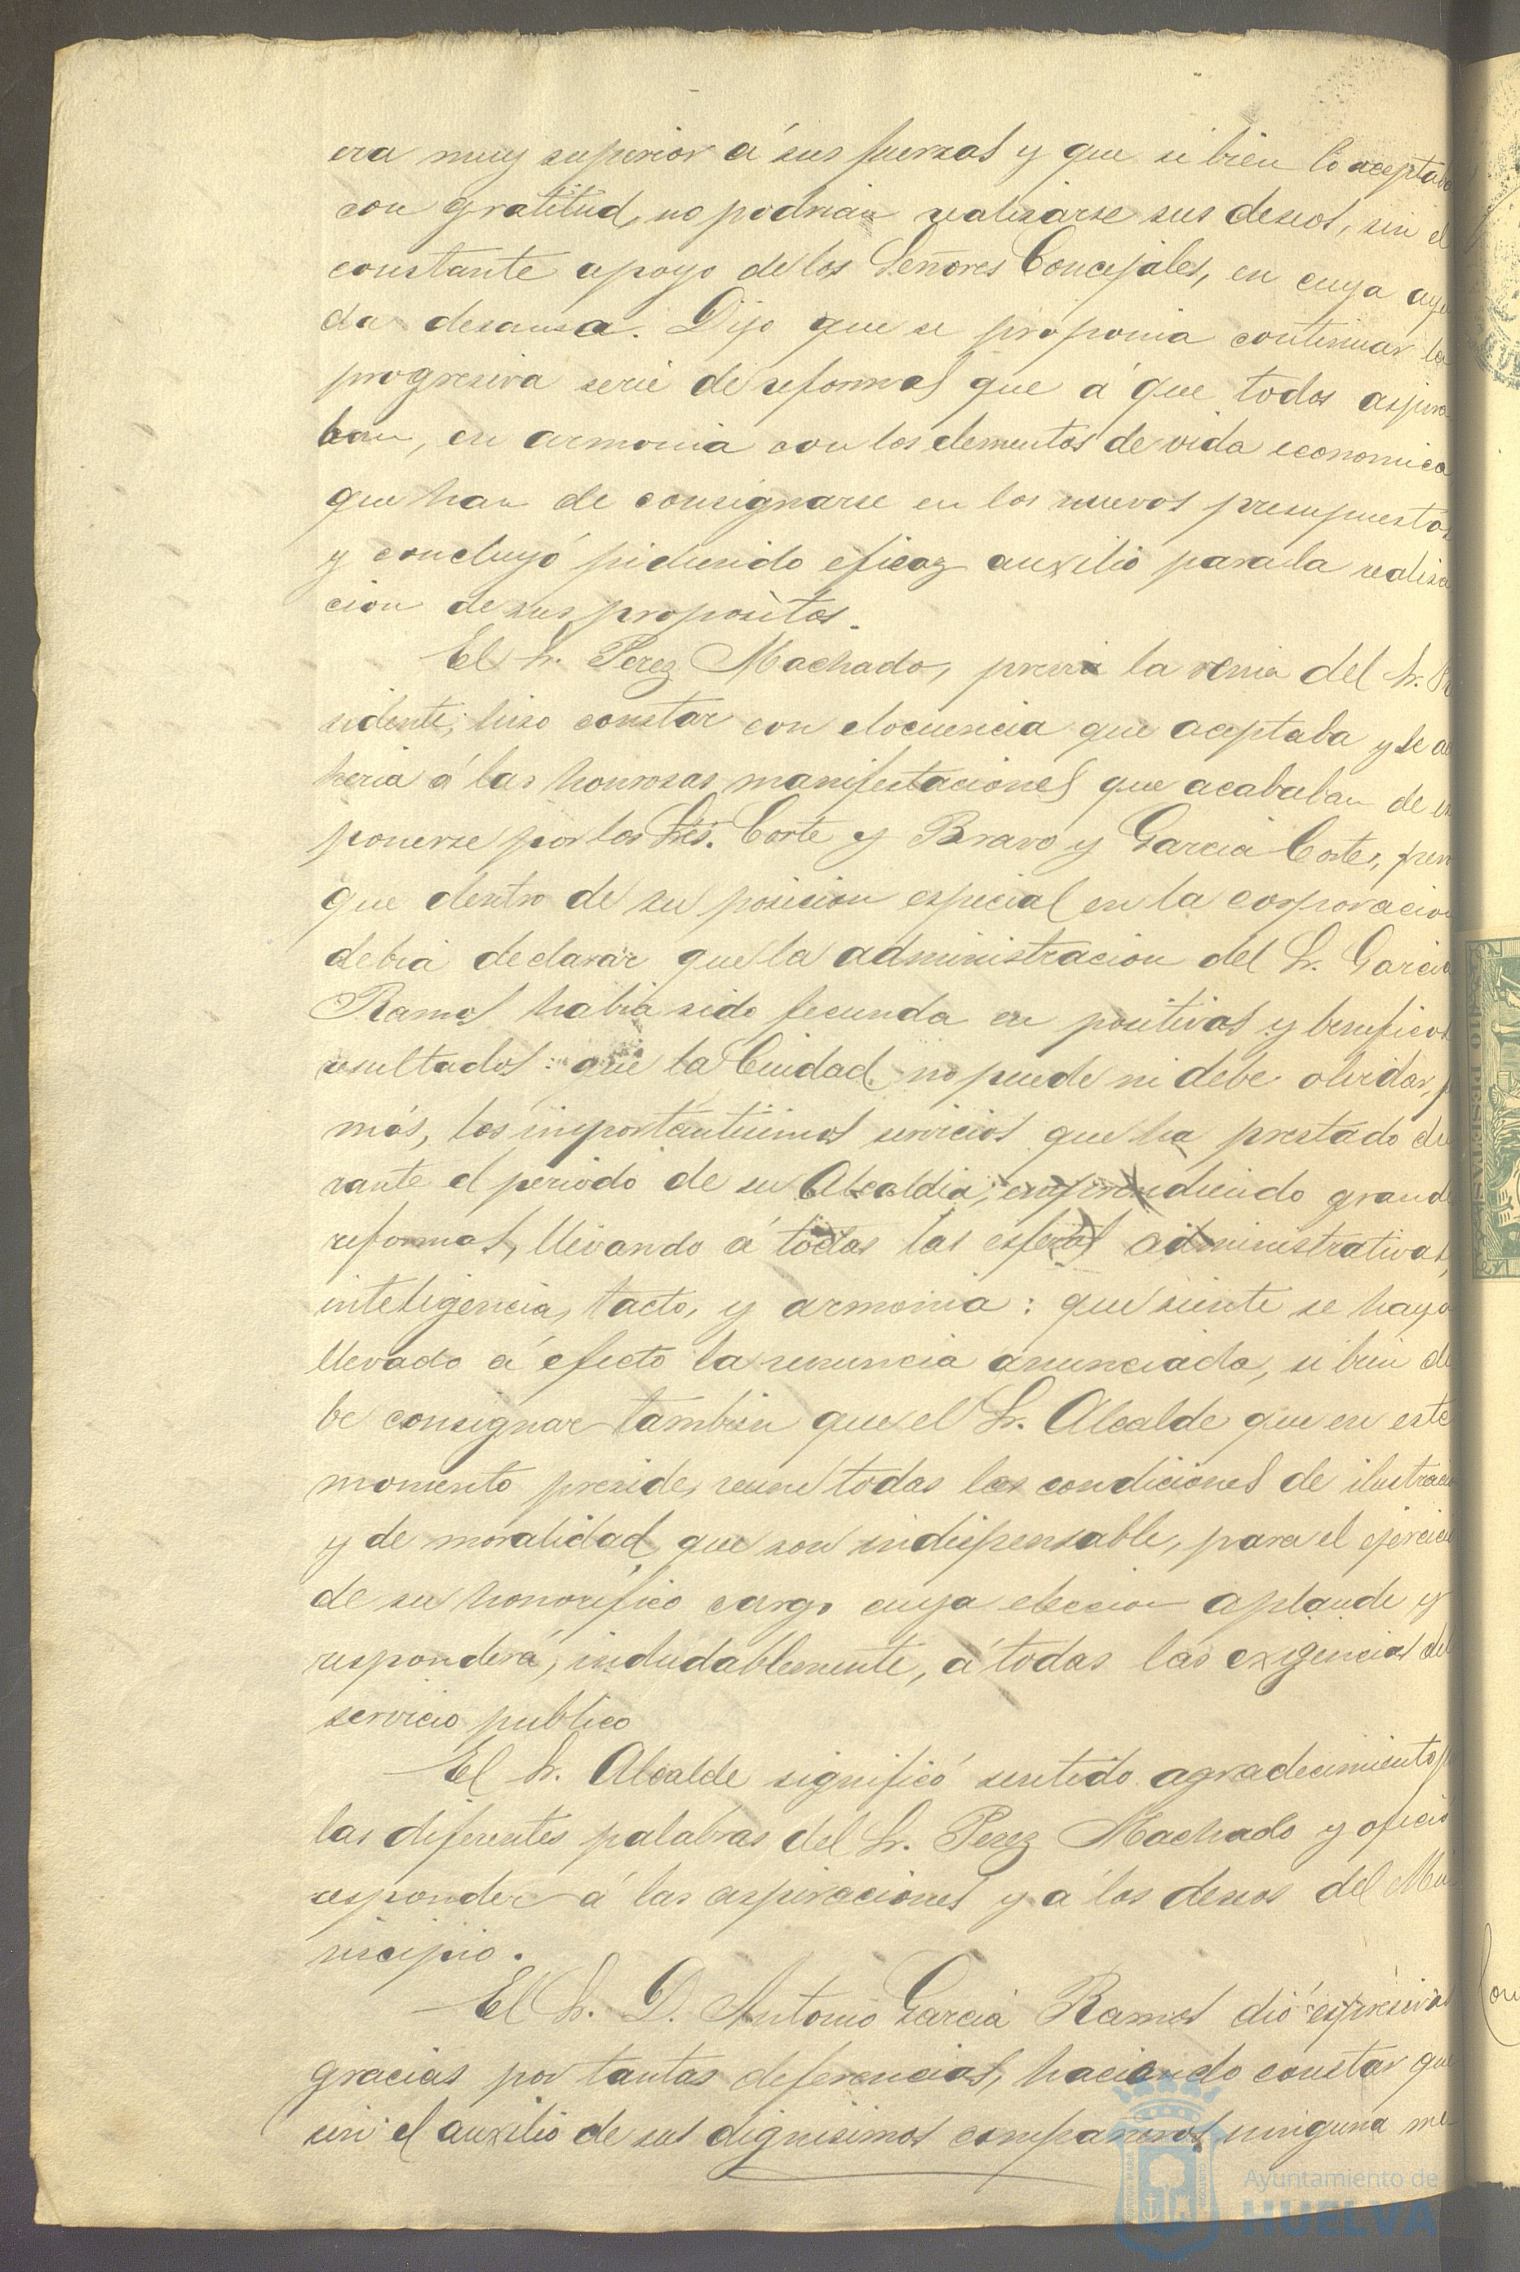 era muy superior á sus fuerzas y que si bien lo aceptaba
con gratitud, no podrian realizarse sus deseos, sin el
constante apoyo de los Señores Concejales, en cuya ayu
da descansa. Dijo que se proponia continuar la
progresiva serie de reformas que á que todos aspira
ban, en armonia con los elementos de vida economica
que han de consignarse en los nuevos presupuestos
y concluyó pidiendo eficaz auxilio para la realiza
cion de sus propositos.
El Sr. Perez Machado, previa la venia del Sr. Pre
sidente, hizo constar con elocuencia que aceptaba y se ad
heria á las honrosas manifestaciones que acababan de ex
ponerse por los Sres. Corte y Bravo y Garcia Cortes, pero
que dentro de su posicion especial en la corporacion
debia declarar que la administracion del Sr. Garcia
Ramos habia sido fecunda en positivos y beneficos
resultados: que la Ciudad no puede ni debe olvidar, ja
más, los importantisimos servicios que ha prestado du
rante el periodo de su Alcaldia, emprendiendo grandes
reformas, llevando á todas las esferas administrativas,
inteligencia, tacto, y armonia: que siente se haya
llevado á efecto la renuncia anunciada, si bien de
be consignar tambien que el Sr. Alcalde que en este
momento preside, reune todas las condiciones de ilustracion
y de moralidad que son indispensable, para el ejercicio
de su honorifico cargo cuya eleccion aplaude y
responderá, indudablemente, á todas las exigencias del
servicio publico
El Sr. Alcalde significó sentido agradecimiento
las diferentes palabras del Sr. Perez Machado y ofreció
responder á las aspiraciones y á los deseos del Mu
nicipio.
El Sr. D. Antonio Garcia Ramos dió espresivas
gracias por tantas deferencias, haciendo constar que
sin el auxilio de sus dignisimos compañeros, ninguna me
Ayuntamiento de
HUELVA